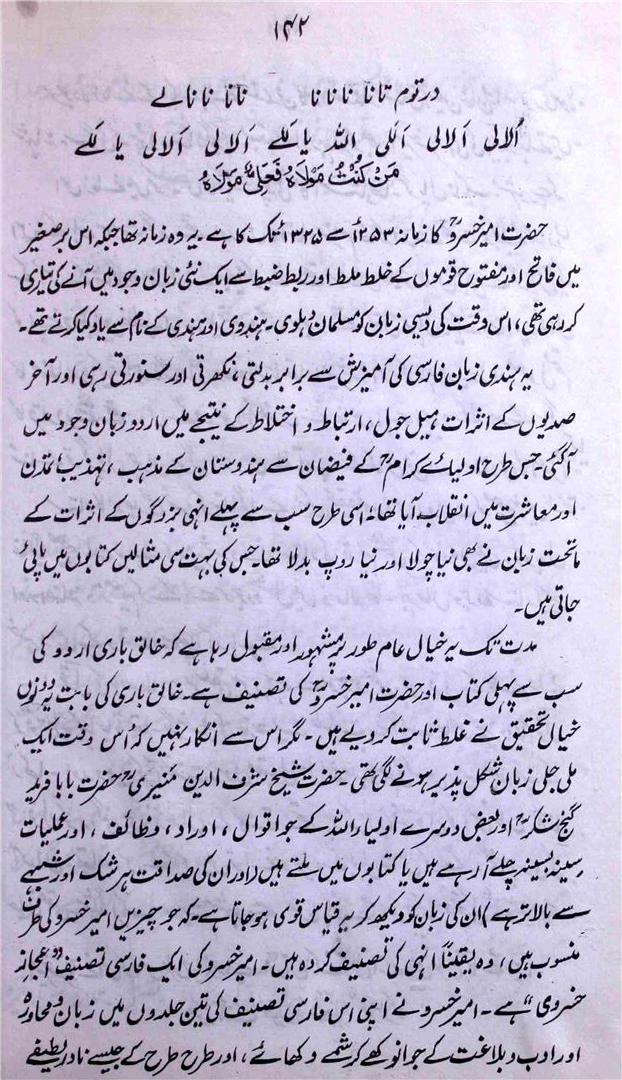 ۱۴۲
در توم تانا نانانا نانا نانا لے
اُلالی اَلالی اَللی اللہ یا للے اَلالی اَلالی یا للے
مَنْ کُنْتُ مَوْلَاہُ فَعَلِیٌّ مَوْلَاہُ
حضرت امیر خسروؒ کا زمانہ ۱۲۵۳ء سے ۱۳۲۵ء تک کا ہے۔ یہ وہ زمانہ تھا جبکہ اس برصغیر
میں فاتح اور مفتوح قوموں کے خلط ملط اور ربط ضبط سے ایک نئی زبان وجود میں آنے کی تیاری
کر رہی تھی، اس وقت کی دیسی زبان کو مسلمان دہلوی۔ ہندوی اور ہندی کے نام سے یاد کیا کرتے تھے۔
یہ ہندی زبان فارسی کی آمیزش سے برابر بدلتی، نکھرتی اور سنورتی رہی اور آخر
صدیوں کے اثرات میل جول، ارتباط و اختلاط کے نتیجے میں اردو زبان وجود میں
آگئی۔ جس طرح اولیائے کرامؒ کے فیضان سے ہندوستان کے مذہب، تہذیب، تمدن
اور معاشرت میں انقلاب آیا تھا، اسی طرح سب سے پہلے انہی بزرگوں کے اثرات کے
ماتحت زبان نے بھی نیا چولا اور نیا روپ بدلا تھا۔ جس کی بہت سی مثالیں کتابوں میں پائی
جاتی ہیں۔
مدت تک یہ خیال عام طور پر مشہور اور مقبول رہا ہے کہ خالق باری اردو کی
سب سے پہلی کتاب اور حضرت امیر خسروؒ کی تصنیف ہے۔ خالق باری کی بابت یہ دونوں
خیال تحقیق نے غلط ثابت کر دیے ہیں۔ مگر اس سے انکار نہیں کہ اُس وقت ایک
ملی جلی زبان شکل پذیر ہونے لگی تھی۔ حضرت شیخ شرف الدین منیریؒ حضرت بابا فرید
گنج شکرؒ اور بعض دوسرے اولیاء اللہ کے جو اقوال، اوراد، وظائف، اور عملیات
سینہ بسینہ چلے آرہے ہیں یا کتابوں میں ملتے ہیں (اور ان کی صداقت ہر شک اور شبہے
سے بالاتر ہے) ان کی زبان کو دیکھ کر یہ قیاس قوی ہو جاتا ہے۔ کہ جو چیزیں امیر خسرو کی طرف
منسوب ہیں، وہ یقیناً انہی کی تصنیف کردہ ہیں۔ امیر خسرو کی ایک فارسی تصنیف "اعجاز
خسروی" ہے۔ امیر خسرو نے اپنی اس فارسی تصنیف کی تین جلدوں میں زبان و محاورہ
اور ادب و بلاغت کے جو انوکھے کرشمے دکھائے، اور طرح طرح کے جیسے نادر لطیفے